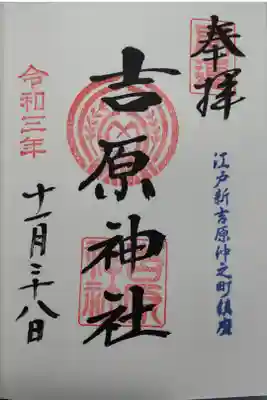 奉拝
江戸新吉原仲之町鎮座
吉原神社
令和三年
十一月二十八日